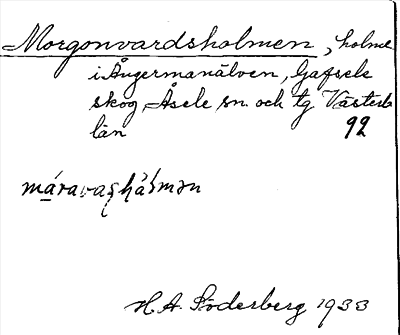 Morgonvardsholmen, holme
i Ångermanälven, Gafsele
skog Åsele sn. och tg Västerb
län 92
H.A. Söderberg 1933